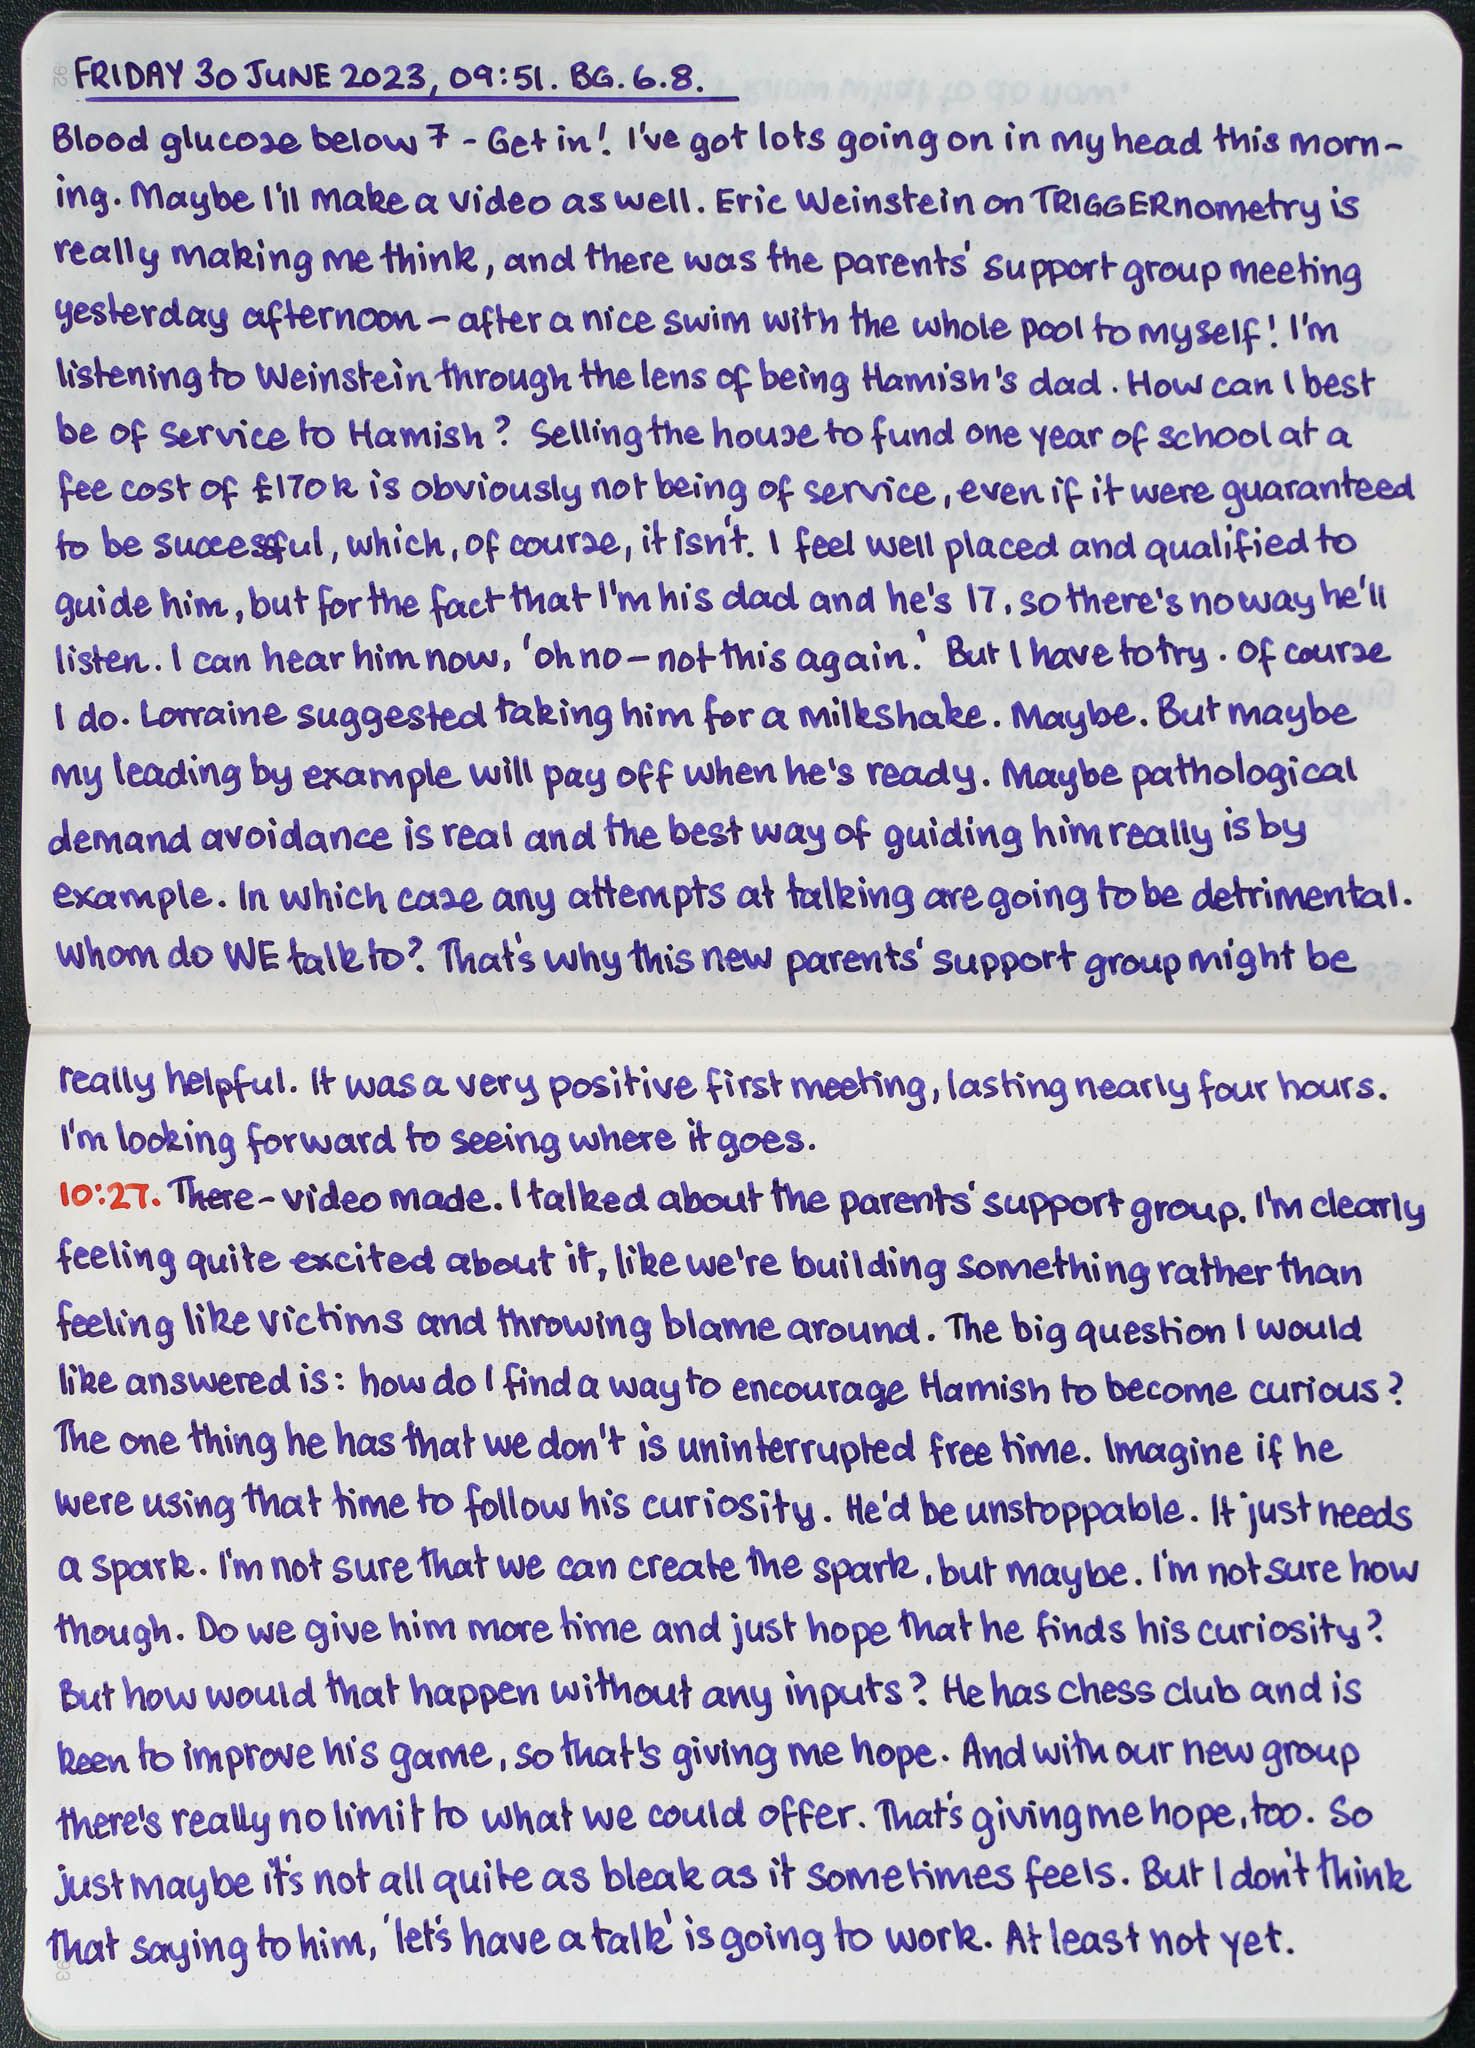 FRIDAY 30 JUNE 2023, 09:51. BG. 6.8.
Blood glucose below 7 - Get in! I've got lots going on in my head this morn-
ing. Maybe I'll make a video as well. Eric Weinstein on TRIGGERnometry is
really making me think, and there was the parents' support group meeting
yesterday afternoon – after a nice swim with the whole pool to myself! I'm
listening to Weinstein through the lens of being Hamish's dad. How can I best
be of service to Hamish? Selling the house to fund one year of school at a
fee cost of £170k is obviously not being of service, even if it were guaranteed
to be successful, which, of course, it isn't. I feel well placed and qualified to
guide him, but for the fact that I'm his dad and he's 17, so there's no way he'll
listen. I can hear him now, 'oh no – not this again.' But I have to try. Of course
I do. Lorraine suggested taking him for a milkshake. Maybe. But maybe
my leading by example will pay off when he's ready. Maybe pathological
demand avoidance is real and the best way of guiding him really is by
example. In which case any attempts at talking are going to be detrimental.
Whom do WE talk to? That's why this new parents' support group might be
really helpful. It was a very positive first meeting, lasting nearly four hours.
I'm looking forward to seeing where it goes.
10:27. There – video made. I talked about the parents' support group. I'm clearly
feeling quite excited about it, like we're building something rather than
feeling like victims and throwing blame around. The big question I would
like answered is: how do I find a way to encourage Hamish to become curious?
The one thing he has that we don't is uninterrupted free time. Imagine if he
were using that time to follow his curiosity. He'd be unstoppable. It just needs
a spark. I'm not sure that we can create the spark, but maybe. I'm not sure how
though. Do we give him more time and just hope that he finds his curiosity?
But how would that happen without any inputs? He has chess club and is
keen to improve his game, so that's giving me hope. And with our new group
there's really no limit to what we could offer. That's giving me hope, too. So
just maybe it's not all quite as bleak as it sometimes feels. But I don't think
that saying to him, 'let's have a talk' is going to work. At least not yet.
92
93